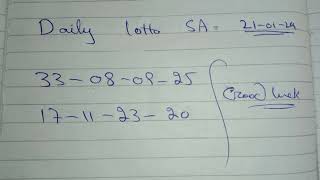 Daily lotto SA = 21-01-24
33-08-09-25
17-11-23-20
Good luck